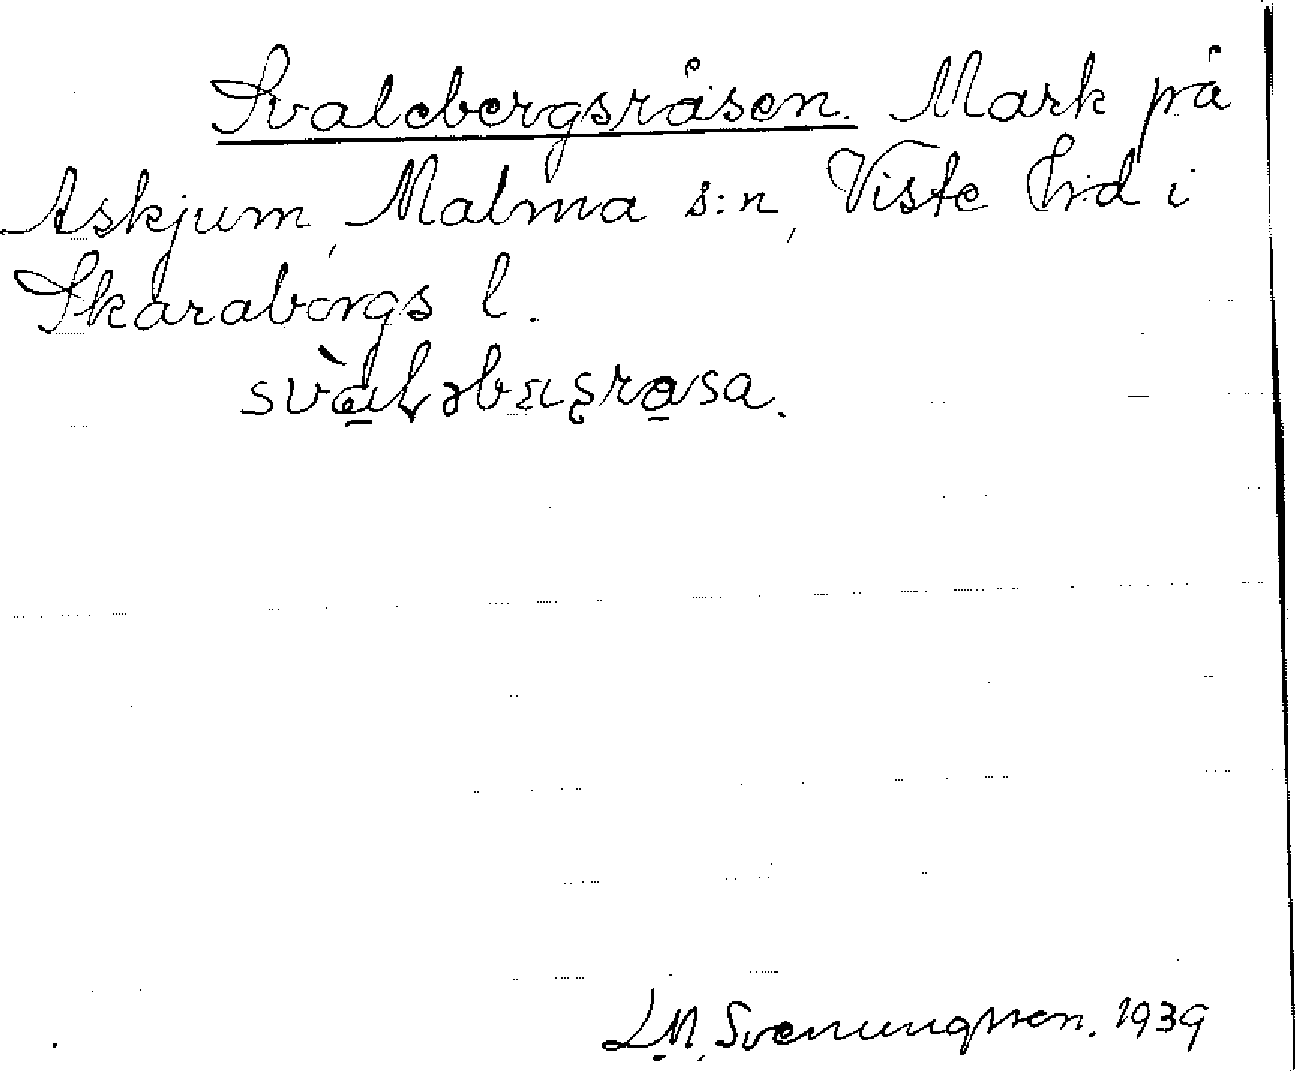 Svalebergsråsen. Mark på
Askjum, Malma s:n, Viste hrd i
Skaraborgs l.
L.M. Svenungsson. 1939